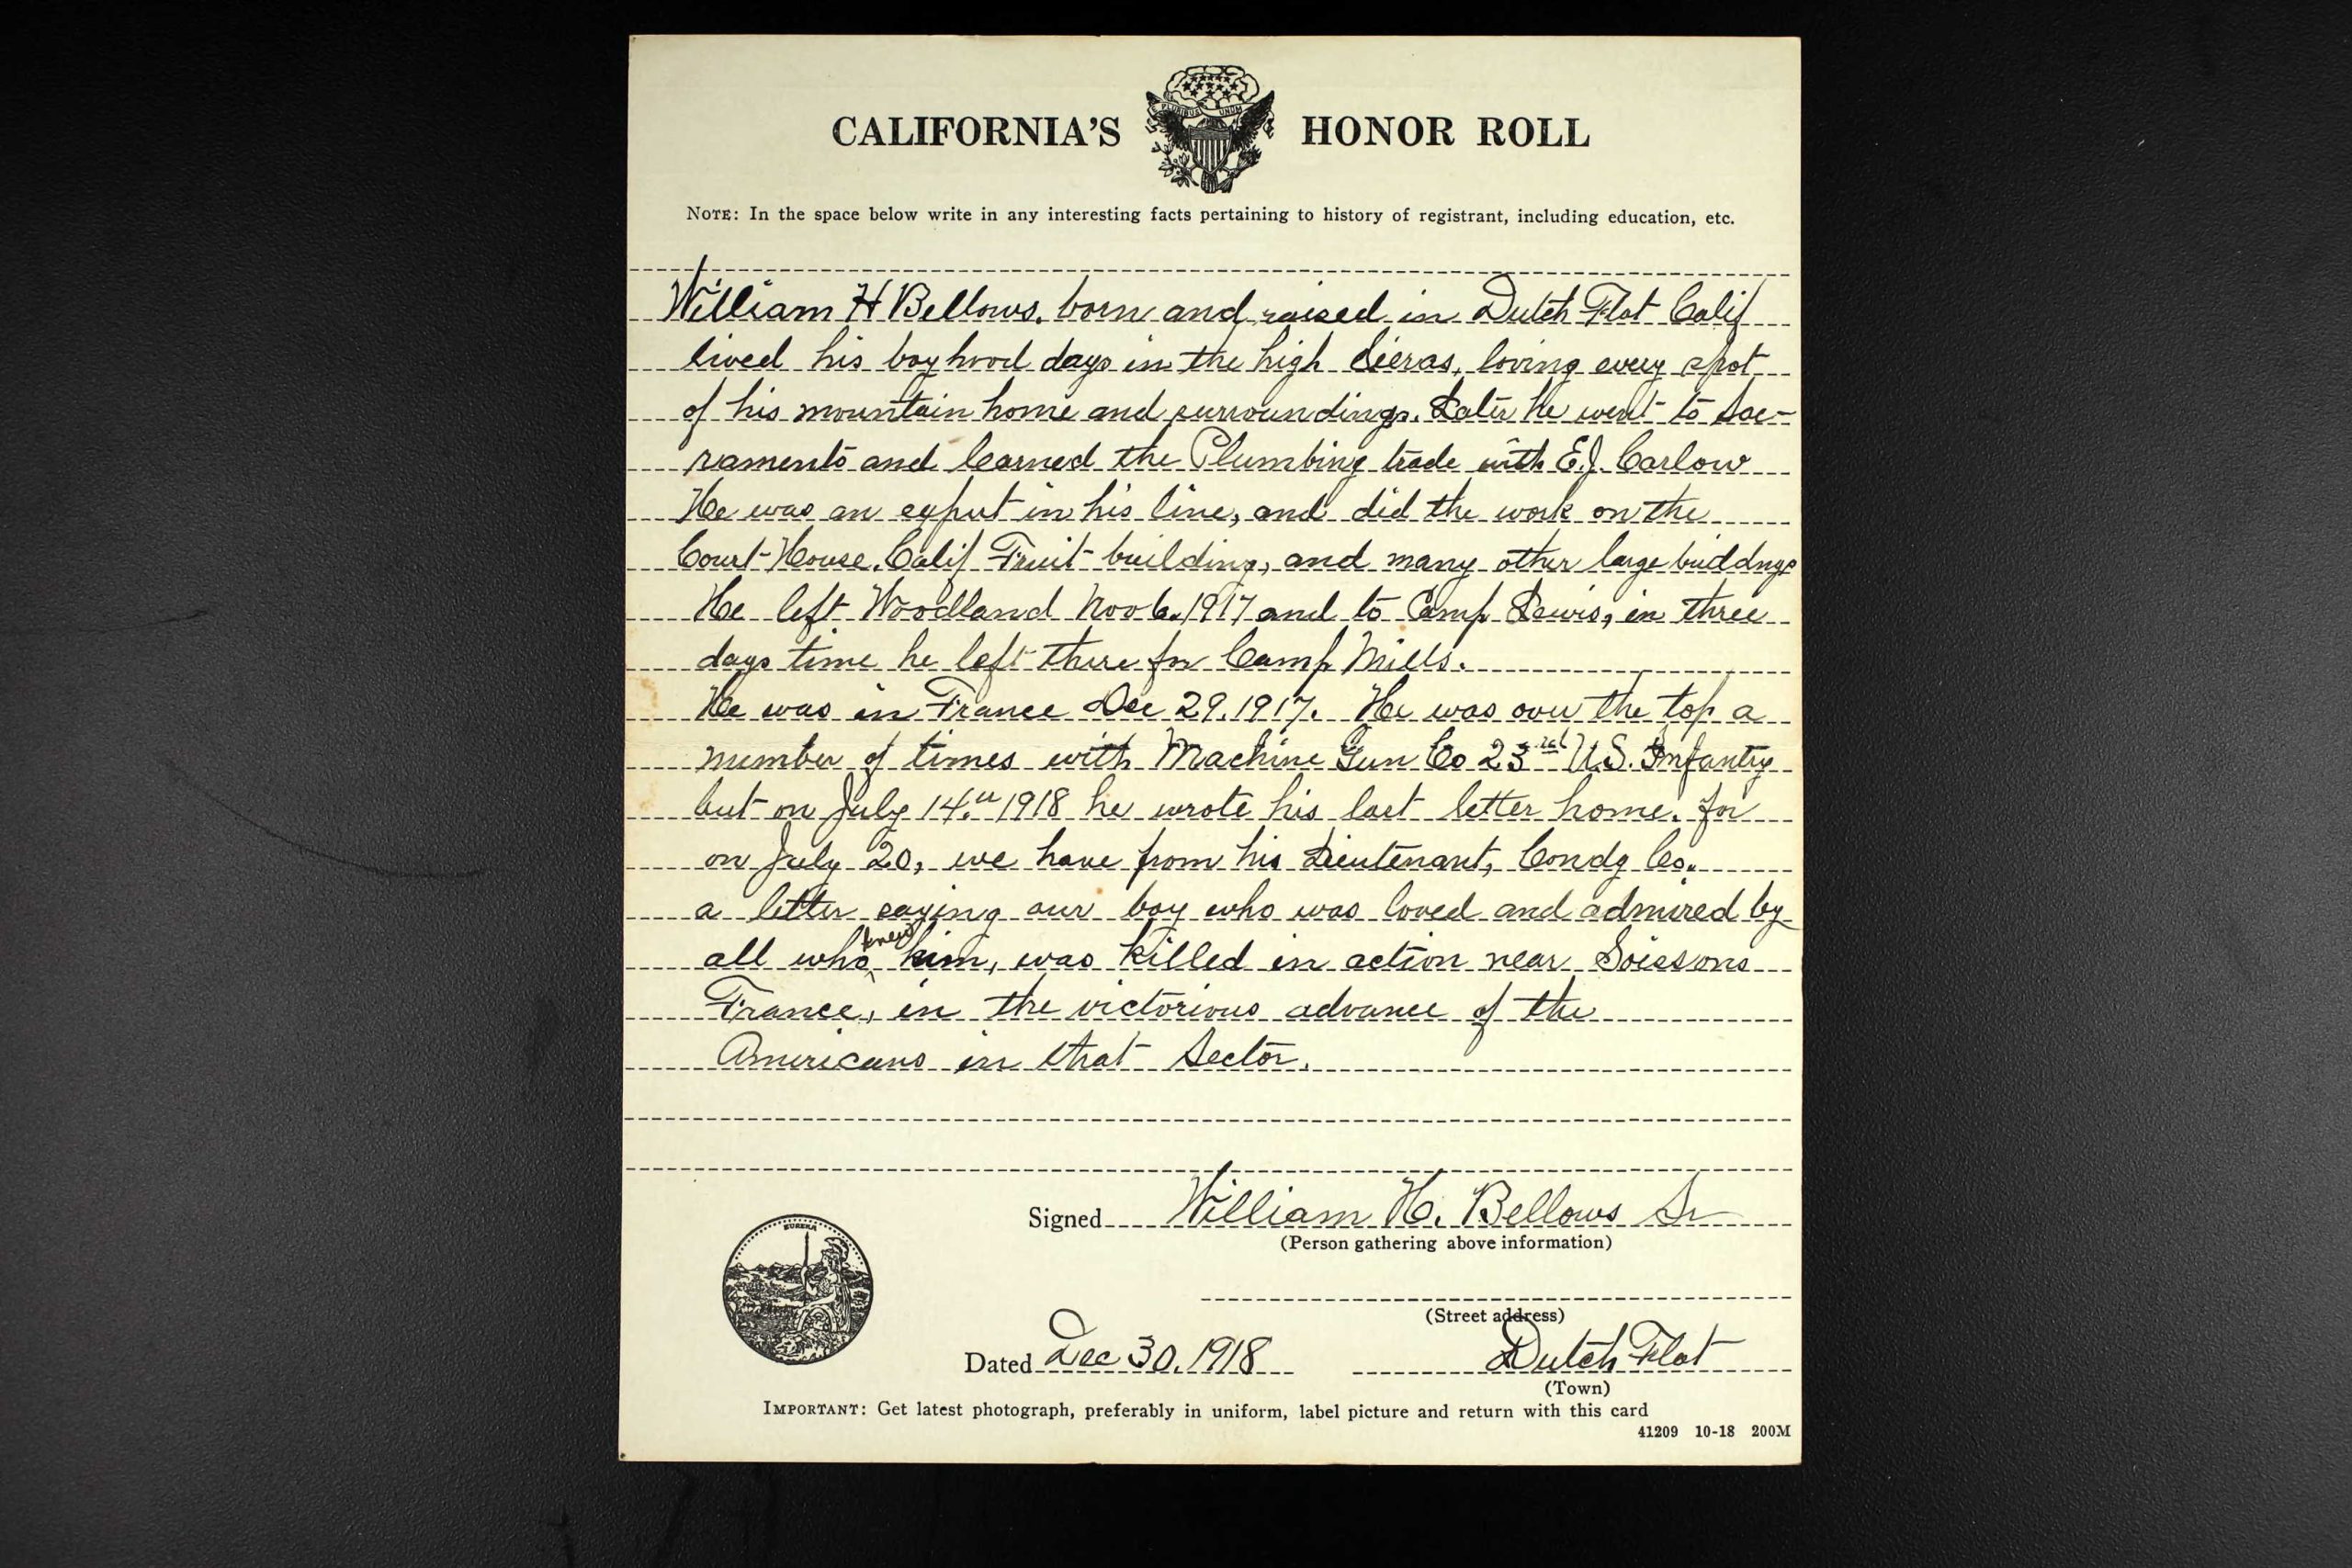 CALIFORNIA'S HONOR ROLL
E PLURIBUS UNUM
NOTE: In the space below write in any interesting facts pertaining to history of registrant, including education, etc.
William H Bellows. born and raised in Dutch Flat Calif
lived his boyhood days in the high Sieras, loving every spot
of his mountain home and surroundings. Later he went to Sac-
ramento and learned the Plumbing trade with E.J. Carlow
He was an expert in his line, and did the work on the
Court-House, Calif Fruit building, and many other large buildings
He left Woodland Nov 6. 1917 and to Camp Lewis, in three
days time he left there for Camp Mills.
He was in France Dec 29. 1917. He was over the top a
number of times with Machine Gun Co 23rd U.S. Infantry
but on July 14th 1918 he wrote his last letter home. for
on July 20, we have from his Lieutenant, Condg Co.
a letter saying our boy who was loved and admired by
all who knew him, was killed in action near Soissons
France, in the victorious advance of the
Americans in that Sector.
Signed William H. Bellows Sr
(Person gathering above information)
EUREKA
(Street address)
Dated Dec 30. 1918 Dutch Flat
(Town)
IMPORTANT: Get latest photograph, preferably in uniform, label picture and return with this card
41209 10-18 200M